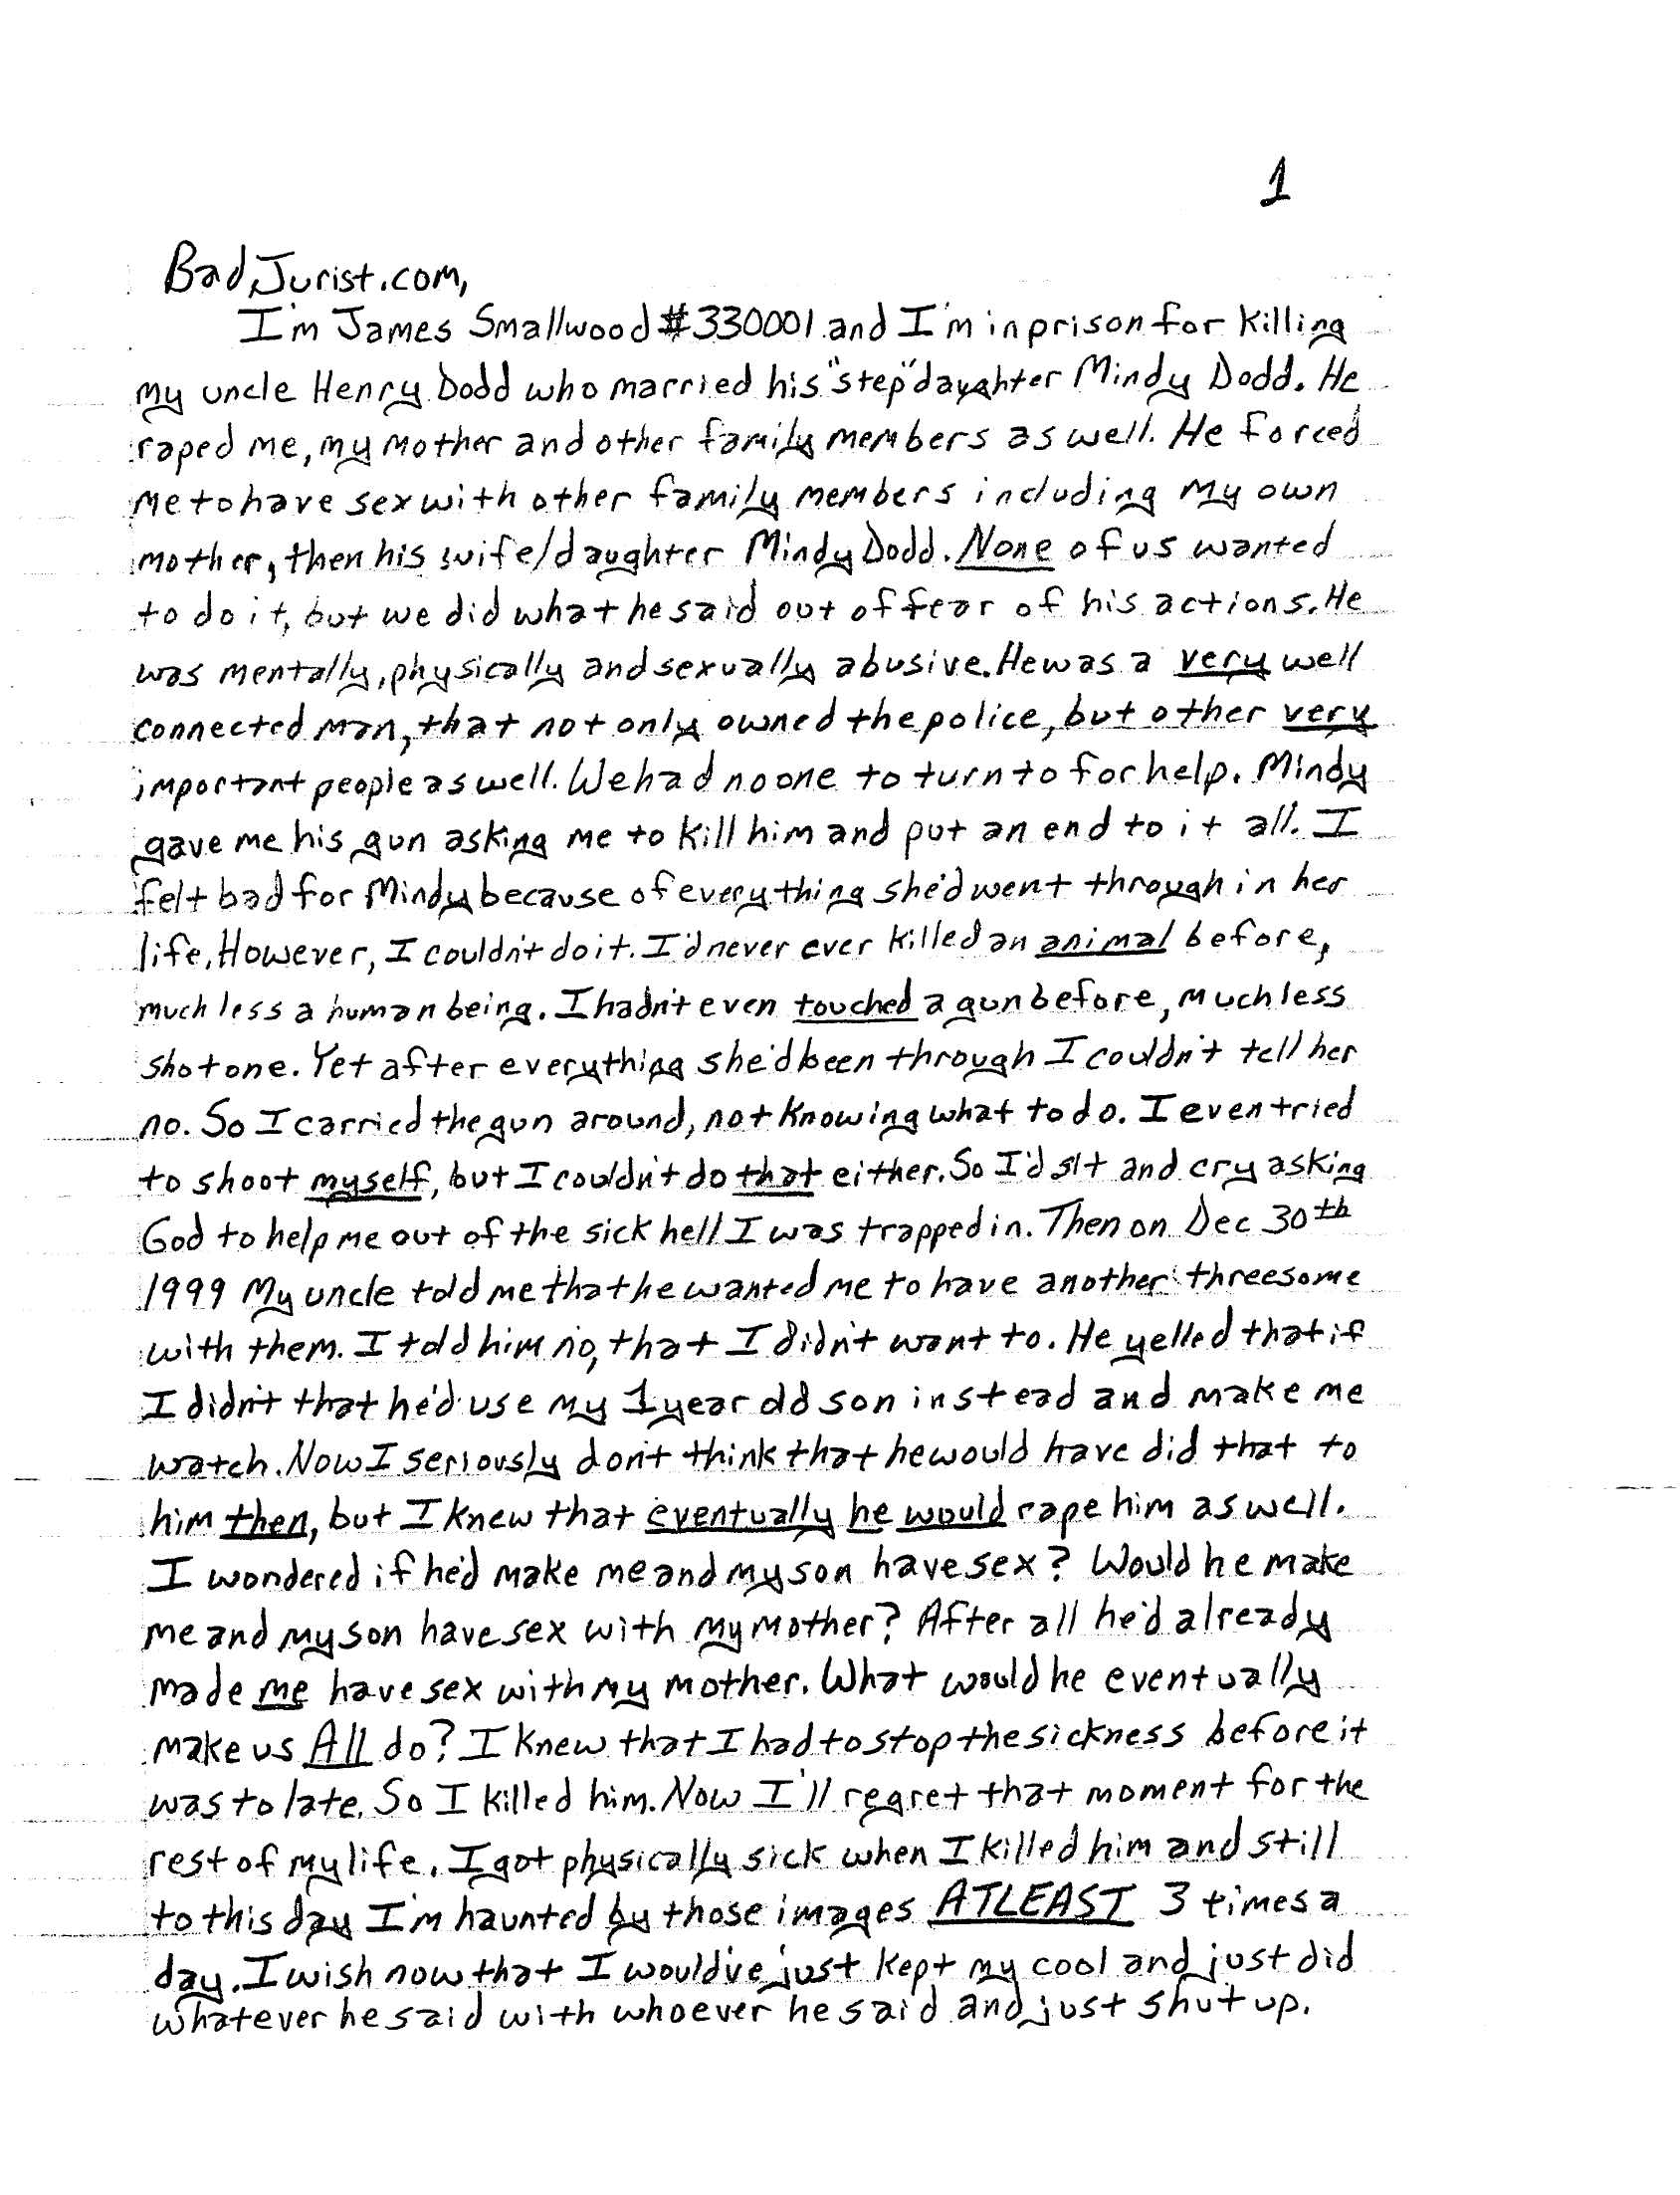 1
BadJurist.com,
I'm James Smallwood #330001 and I'm in prison for killing
my uncle Henry Dodd who married his "step" daughter Mindy Dodd. He
raped me, my mother and other family members as well. He forced
me to have sex with other family members including my own
mother, then his wife/daughter Mindy Dodd. None of us wanted
to do it, but we did what he said out of fear of his actions. He
was mentally, physically and sexually abusive. He was a very well
connected man, that not only owned the police, but other very
important people as well. We had no one to turn to for help. Mindy
gave me his gun asking me to kill him and put an end to it all. I
felt bad for Mindy because of everything she'd went through in her
life. However, I couldn't do it. I'd never ever killed an animal before,
much less a human being. I hadn't even touched a gun before, much less
shot one. Yet after everything she'd been through I couldn't tell her
no. So I carried the gun around, not knowing what to do. I even tried
to shoot myself, but I couldn't do that either. So I'd sit and cry asking
God to help me out of the sick hell I was trapped in. Then on Dec 30th
1999 My uncle told me that he wanted me to have another threesome
with them. I told him no, that I didn't want to. He yelled that if
I didn't that he'd use my 1 year old son instead and make me
watch. Now I seriously don't think that he would have did that to
him then, but I knew that eventually he would rape him as well.
I wondered if he'd make me and my son have sex? Would he make
me and my son have sex with my mother? After all he'd already
made me have sex with my mother. What would he eventually
make us All do? I knew that I had to stop the sickness before it
was to late. So I killed him. Now I'll regret that moment for the
rest of my life. I got physically sick when I killed him and still
to this day I'm haunted by those images ATLEAST 3 times a
day. I wish now that I would've just kept my cool and just did
whatever he said with whoever he said and just shut up.